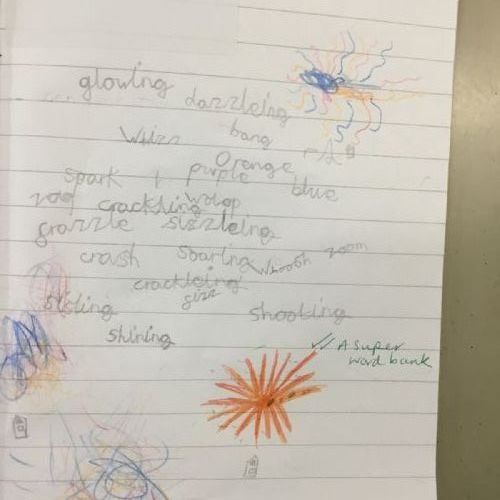 glowing
dazzleing
Whizz bang
Orange
spark purple blue
zoom crackling wosop
frazzle sizzleing
crash soaring whoosh zoom
crackleing
sisling sizz shooting
shining
✓✓ A super
word bank